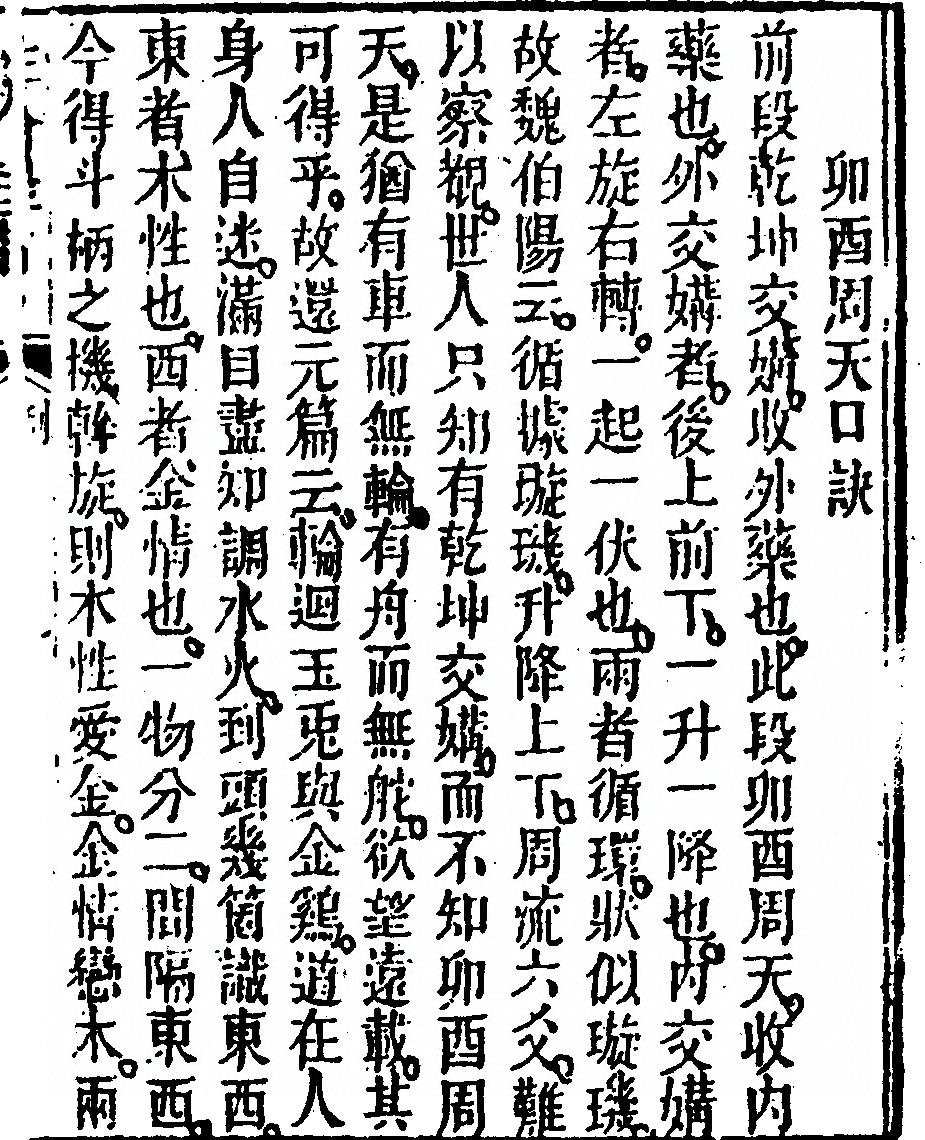 卯酉周天口訣
前段乾坤交媾。收外藥也。此段卯酉周天。收內
藥也。外交媾者。後上前下。一升一降也。內交媾
者。左旋右轉。一起一伏也。兩者循環。狀似璇璣。
故魏伯陽云。循據璇璣。升降上下。周流六爻。難
以察覩。世人只知有乾坤交媾。而不知卯酉周
天。是猶有車而無輪。有舟而無舵。欲望遠載。其
可得乎。故還元篇云。輪迴玉兎與金鷄。道在人
身人自迷。滿目盡知調水火。到頭幾箇識東西。
東者木性也。西者金情也。一物分二。間隔東西。
今得斗柄之機斡旋。則木性愛金。金情戀木。兩